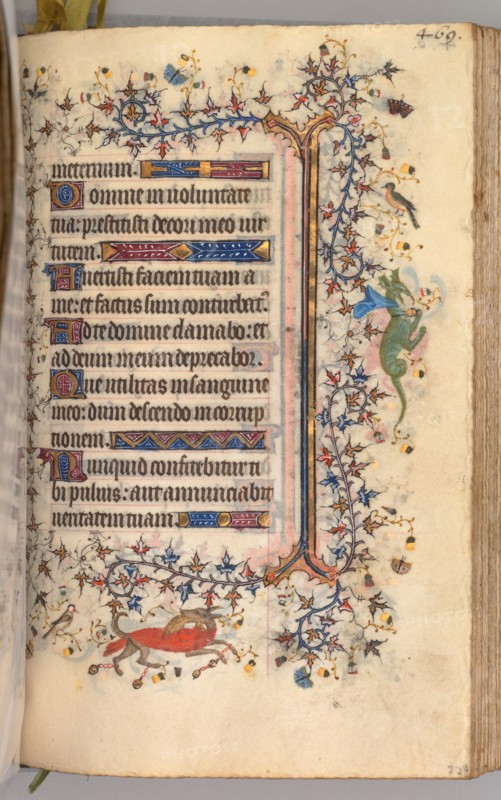 469.
meternum.
Domine in uoluntate
tua: prestitisti decori meo uir
tutem.
Auertisti faciem tuam a
me: et factus sum conturbat9.
Ad te domine clamabo: et
ad deum meum deprecabor.
Que utilitas in sanguine
meo: dum descendo in corrup
tionem.
Nunquid confitebitur ti
bi puluis: aut annunciabit
ueritatem tuam.